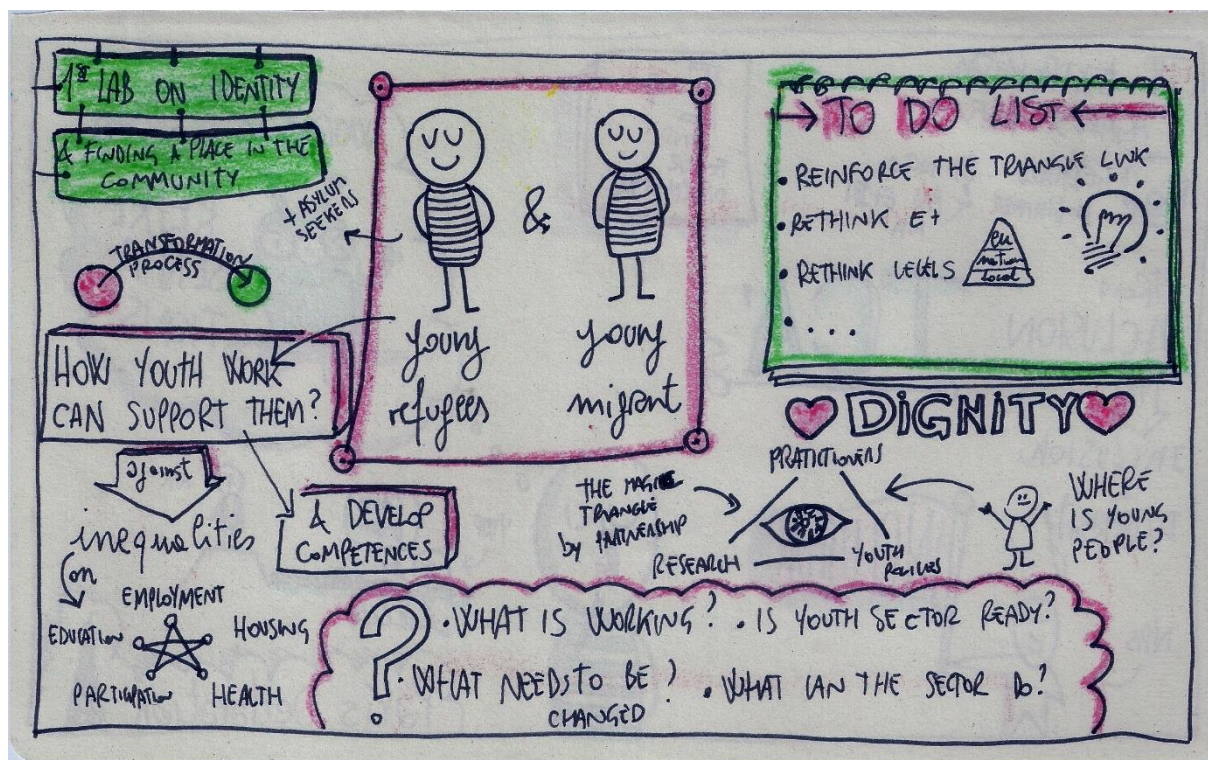 1st LAB ON IDENTITY
& FINDING A PLACE IN THE
COMMUNITY
TRANSFORMATION
PROCESS
HOW YOUTH WORK
CAN SUPPORT THEM?
against
inequalities
on
EMPLOYMENT
EDUCATION
HOUSING
PARTICIPATION
HEALTH
& DEVELOP
COMPETENCES
+ ASYLUM
SEEKERS
&
young
refugees
young
migrant
TO DO LIST
• REINFORCE THE TRIANGLE LINK
• RETHINK E+
• RETHINK LEVELS
eu
nation
local
• . . .
DIGNITY
THE MAGIC
TRIANGLE
by PARTNERSHIP
PRATITIONERS
RESEARCH
YOUTH
POLICIES
WHERE
IS YOUNG
PEOPLE?
?
• WHAT IS WORKING? • IS YOUTH SECTOR READY?
• WHAT NEEDS TO BE ?
CHANGED
• WHAT CAN THE SECTOR DO?